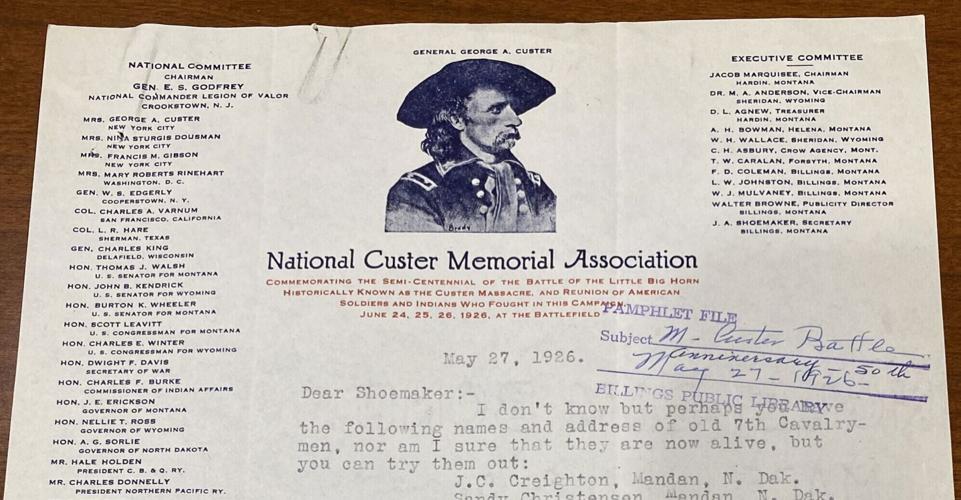 NATIONAL COMMITTEE
CHAIRMAN
GEN. E. S. GODFREY
NATIONAL COMMANDER LEGION OF VALOR
CROOKSTOWN, N. J.
MRS. GEORGE A. CUSTER
NEW YORK CITY
MRS. NINA STURGIS DOUSMAN
NEW YORK CITY
MRS. FRANCIS M. GIBSON
NEW YORK CITY
MRS. MARY ROBERTS RINEHART
WASHINGTON, D. C.
GEN. W. S. EDGERLY
COOPERSTOWN, N. Y.
COL. CHARLES A. VARNUM
SAN FRANCISCO, CALIFORNIA
COL. L. R. HARE
SHERMAN, TEXAS
GEN. CHARLES KING
DELAFIELD, WISCONSIN
HON. THOMAS J. WALSH
U. S. SENATOR FOR MONTANA
HON. JOHN B. KENDRICK
U. S. SENATOR FOR WYOMING
HON. BURTON K. WHEELER
U. S. SENATOR FOR MONTANA
HON. SCOTT LEAVITT
U. S. CONGRESSMAN FOR MONTANA
HON. CHARLES E. WINTER
U. S. CONGRESSMAN FOR WYOMING
HON. DWIGHT F. DAVIS
SECRETARY OF WAR
HON. CHARLES F. BURKE
COMMISSIONER OF INDIAN AFFAIRS
HON. J. E. ERICKSON
GOVERNOR OF MONTANA
HON. NELLIE T. ROSS
GOVERNOR OF WYOMING
HON. A. G. SORLIE
GOVERNOR OF NORTH DAKOTA
MR. HALE HOLDEN
PRESIDENT C. B. & Q. RY.
MR. CHARLES DONNELLY
PRESIDENT NORTHERN PACIFIC RY.
GENERAL GEORGE A. CUSTER
Brady
EXECUTIVE COMMITTEE
JACOB MARQUISEE, CHAIRMAN
HARDIN, MONTANA
DR. M. A. ANDERSON, VICE-CHAIRMAN
SHERIDAN, WYOMING
D. L. AGNEW, TREASURER
HARDIN, MONTANA
A. H. BOWMAN, HELENA, MONTANA
W. H. WALLACE, SHERIDAN, WYOMING
C. H. ASBURY, CROW AGENCY, MONT.
T. W. CARALAN, FORSYTH, MONTANA
F. D. COLEMAN, BILLINGS, MONTANA
L. W. JOHNSTON, BILLINGS, MONTANA
W. J. MULVANEY, BILLINGS, MONTANA
WALTER BROWNE, PUBLICITY DIRECTOR
BILLINGS, MONTANA
J. A. SHOEMAKER, SECRETARY
BILLINGS, MONTANA
National Custer Memorial Association
COMMEMORATING THE SEMI-CENTENNIAL OF THE BATTLE OF THE LITTLE BIG HORN
HISTORICALLY KNOWN AS THE CUSTER MASSACRE, AND REUNION OF AMERICAN
SOLDIERS AND INDIANS WHO FOUGHT IN THIS CAMPAIGN
JUNE 24, 25, 26, 1926, AT THE BATTLEFIELD
PAMPHLET FILE
Subject M- Custer Battle
Anniversary - 50th
May 27 - 1926-
BILLINGS PUBLIC LIBRARY
May 27, 1926.
Dear Shoemaker:-
I don't know but perhaps you have
the following names and address of old 7th Cavalry-
men, nor am I sure that they are now alive, but
you can try them out:
J.C. Creighton, Mandan, N. Dak.
Sandy Christensen, Mandan, N. Dak.